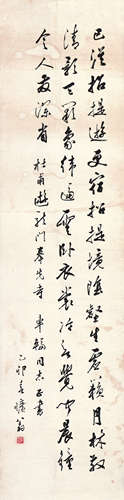 已從招提遊更宿招提境陰壑生虛籟月林散
清影天闕象緯逼雲臥衣裳冷欲覺聞晨鐘
令人發深省 杜甫遊龍門奉先寺 同志正書
乙卯春 翁